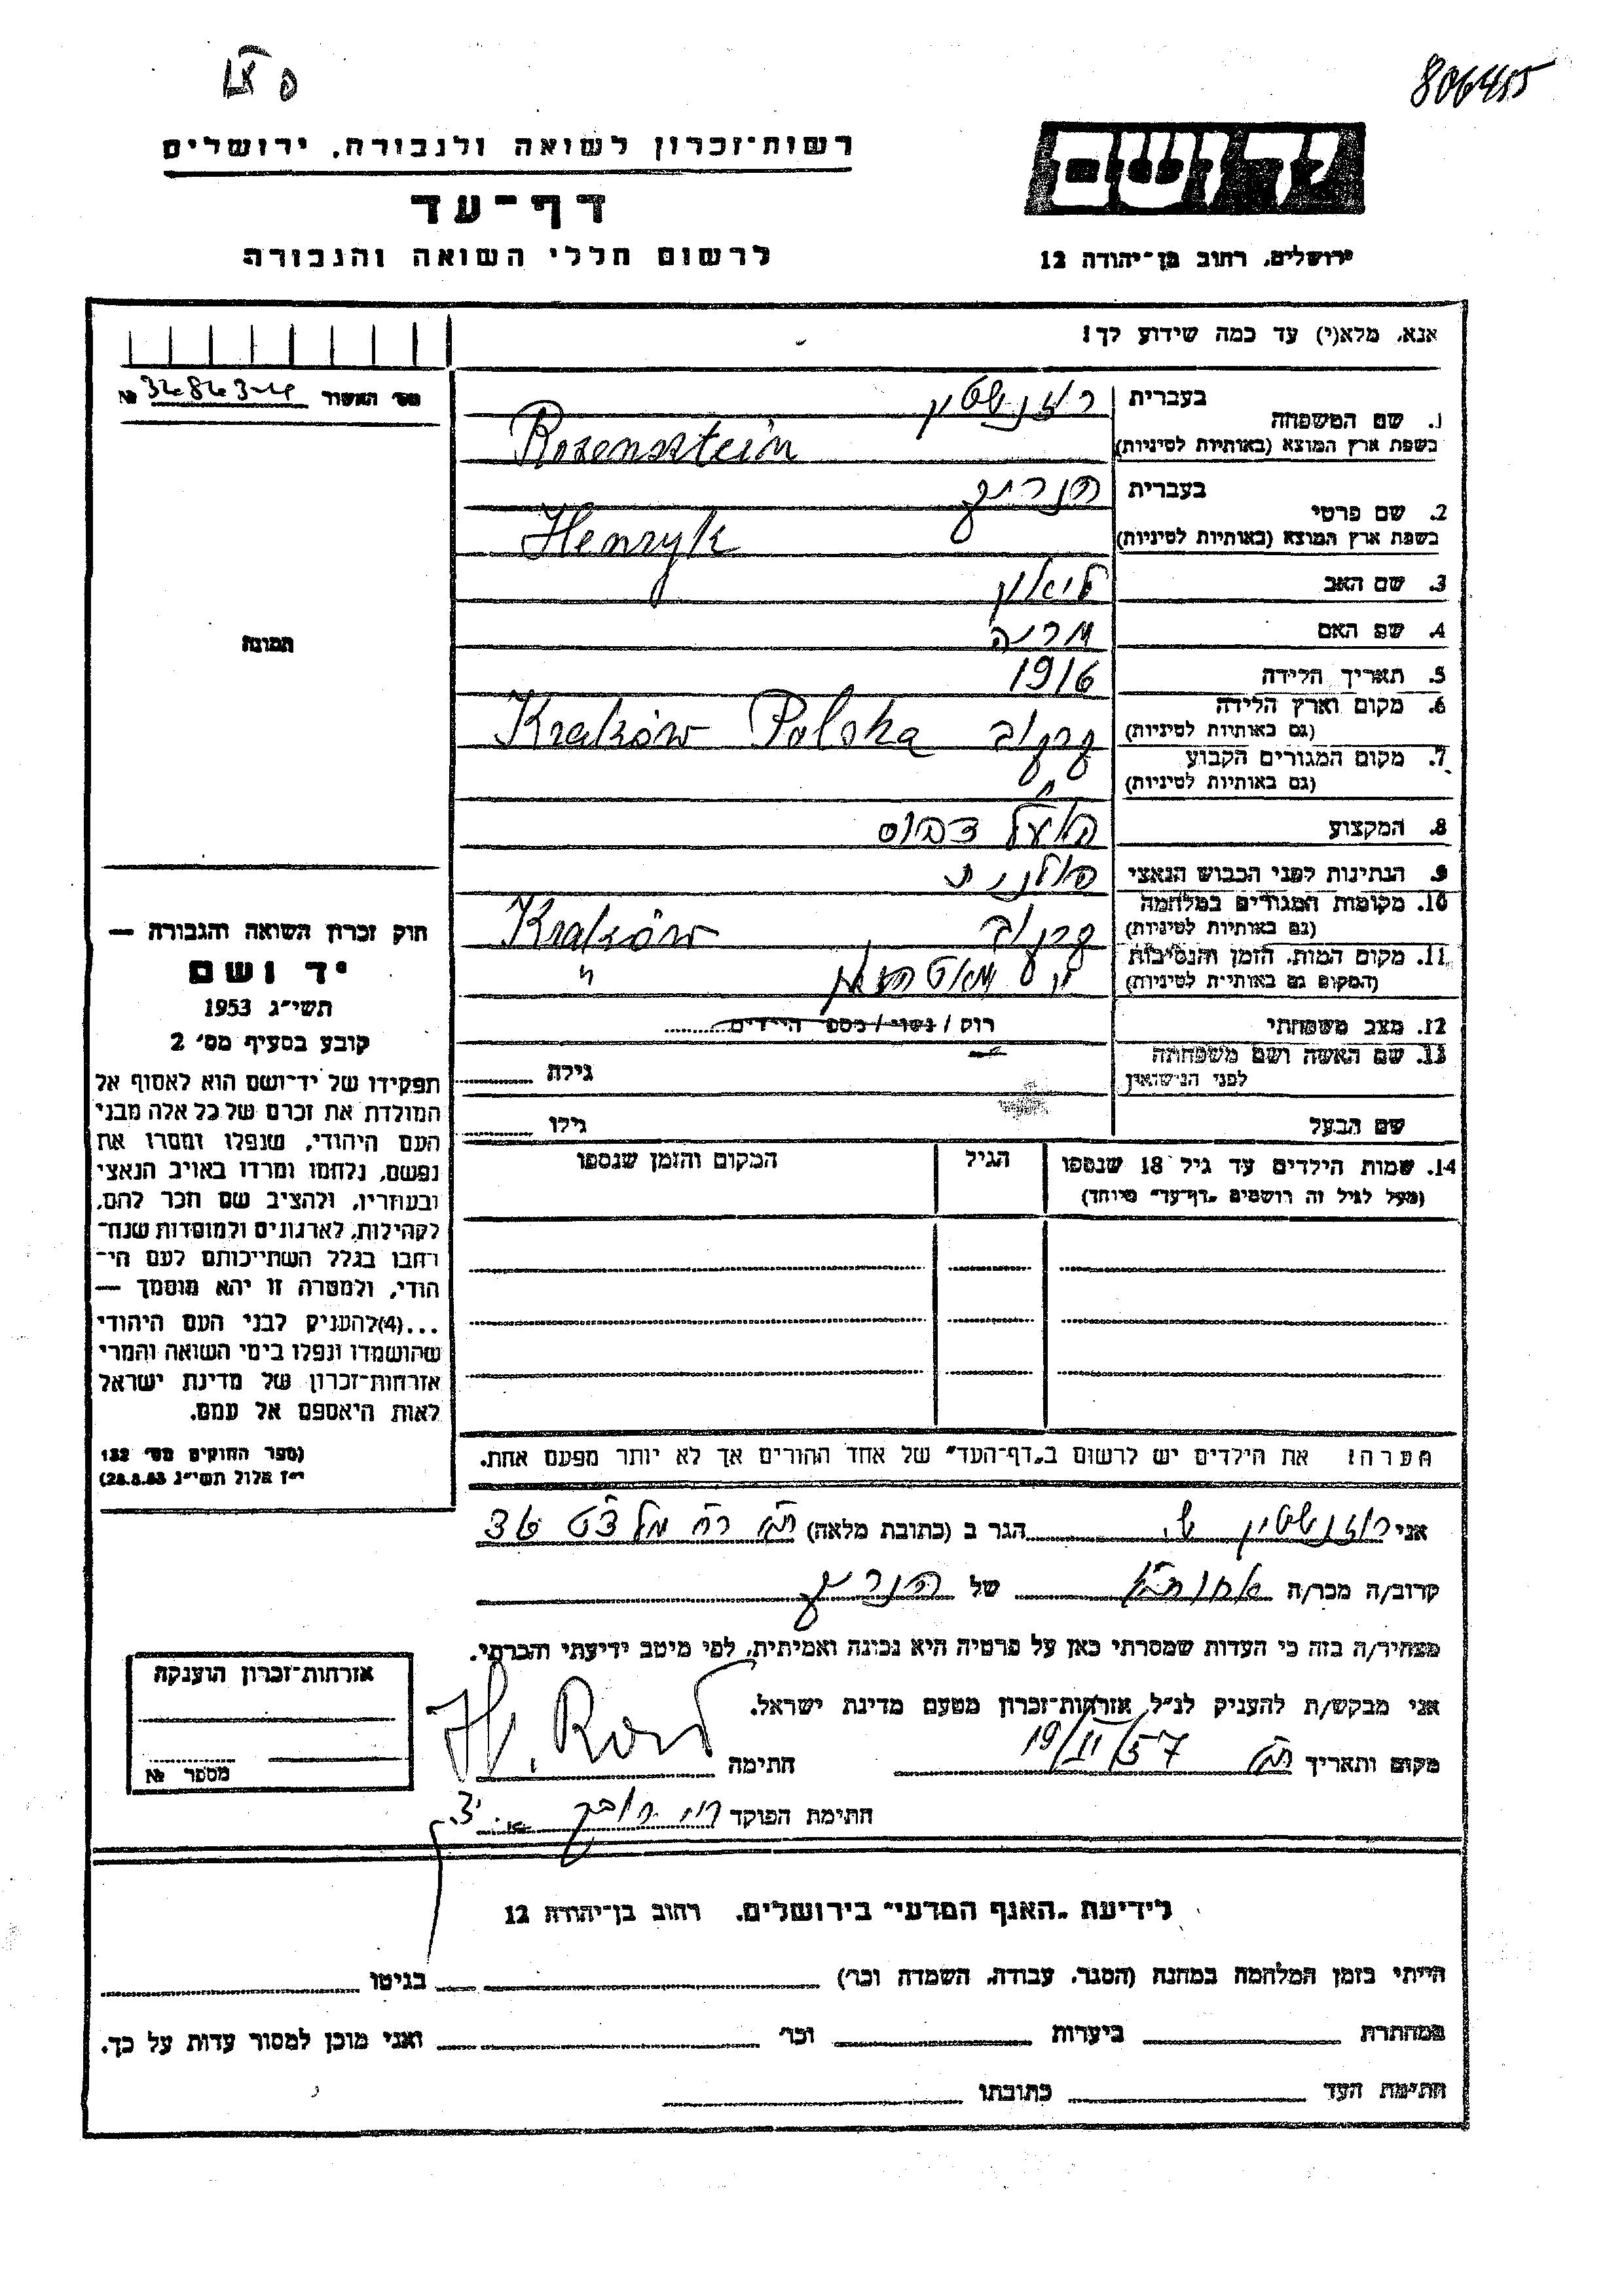 806455
רשות־זכרון לשואה ולגבורה, ירושלים
דף־עד
לרשום חללי השואה והגבורה
יד ושם
ירושלים, רחוב בן־יהודה 12
אנא, מלא(י) עד כמה שידוע לך!
מס׳ האשור №
1. שם המשפחה
בעברית רוזנשטיין
בשפת ארץ המוצא (באותיות לטיניות) Rozensztein
2. שם פרטי
בעברית הנריק
בשפת ארץ המוצא (באותיות לטיניות) Henryk
3. שם האב ליאון
4. שם האם מריה
5. תאריך הלידה 1916
6. מקום וארץ הלידה
(גם באותיות לטיניות) קרקוב Kraków Polska
7. מקום המגורים הקבוע
(גם באותיות לטיניות) "
8. המקצוע פועל דפוס
9. הנתינות לפני הכבוש הנאצי פולנית
10. מקומות המגורים במלחמה
(גם באותיות לטיניות) קרקוב Kraków
11. מקום המות, הזמן והנסיבות
(המקום גם באותיות לטיניות) "
12. מצב משפחתי רוק / נשוי / מספר הילדים
13. שם האשה ושם משפחתה
לפני הנישואין
גילה
שם הבעל גילו
14. שמות הילדים עד גיל 18 שנספו
(מעל לגיל זה רושמים "דף־עד" מיוחד)
הגיל
המקום והזמן שנספו
הערה! את הילדים יש לרשום ב"דף־העד" של אחד ההורים אך לא יותר מפעם אחת.
תמונה
חוק זכרון השואה והגבורה —
יד ושם
תשי״ג 1953
קובע בסעיף מס׳ 2
תפקידו של יד־ושם הוא לאסוף אל
המולדת את זכרם של כל אלה מבני
העם היהודי, שנפלו ומסרו את
נפשם, נלחמו ומרדו באויב הנאצי
ובעוזריו, ולהציב שם וזכר להם,
לקהילות, לארגונים ולמוסדות שנח־
רבו בגלל השתייכותם לעם הי־
הודי, ולמטרה זו יהא מוסמך —
...(4)להעניק לבני העם היהודי
שהושמדו ונפלו בימי השואה והמרי
אזרחות־זכרון של מדינת ישראל
לאות היאספם אל עמם.
(ספר החוקים מס׳ 132
י״ז אלול תשי״ג 28.8.53)
אני רוזנשטיין הגר ב (כתובת מלאה)
קרוב/ה מכר/ה של הנריק
מצהיר/ה בזה כי העדות שמסרתי כאן על פרטיה היא נכונה ואמיתית, לפי מיטב ידיעתי והכרתי.
אני מבקש/ת להעניק לנ״ל, אזרחות־זכרון מטעם מדינת ישראל.
מקום ותאריך 19/II/57 חתימה
חתימת הפוקד
אזרחות־זכרון הוענקה
מספר №
לידיעת "האגף המדעי" בירושלים, רחוב בן־יהודה 12
הייתי בזמן המלחמה במחנה (הסגר, עבודה, השמדה וכו׳) בגיטו
במחתרת ביערות וכו׳ ואני מוכן למסור עדות על כך.
חתימת העד כתובתו